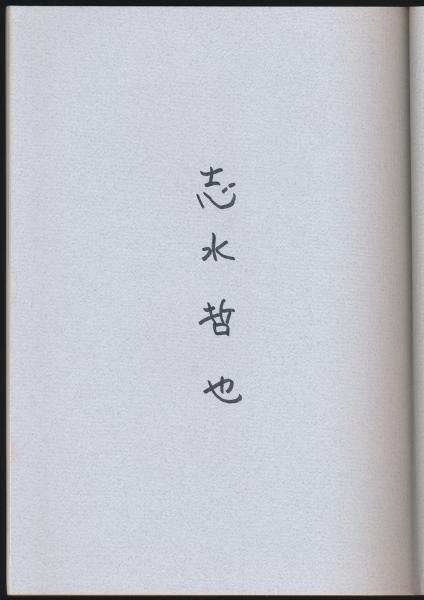 志水哲也